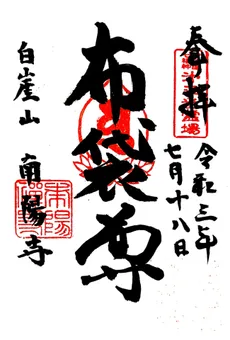 奉拝
令和三年
七月十八日
布袋尊
白崖山
南陽寺